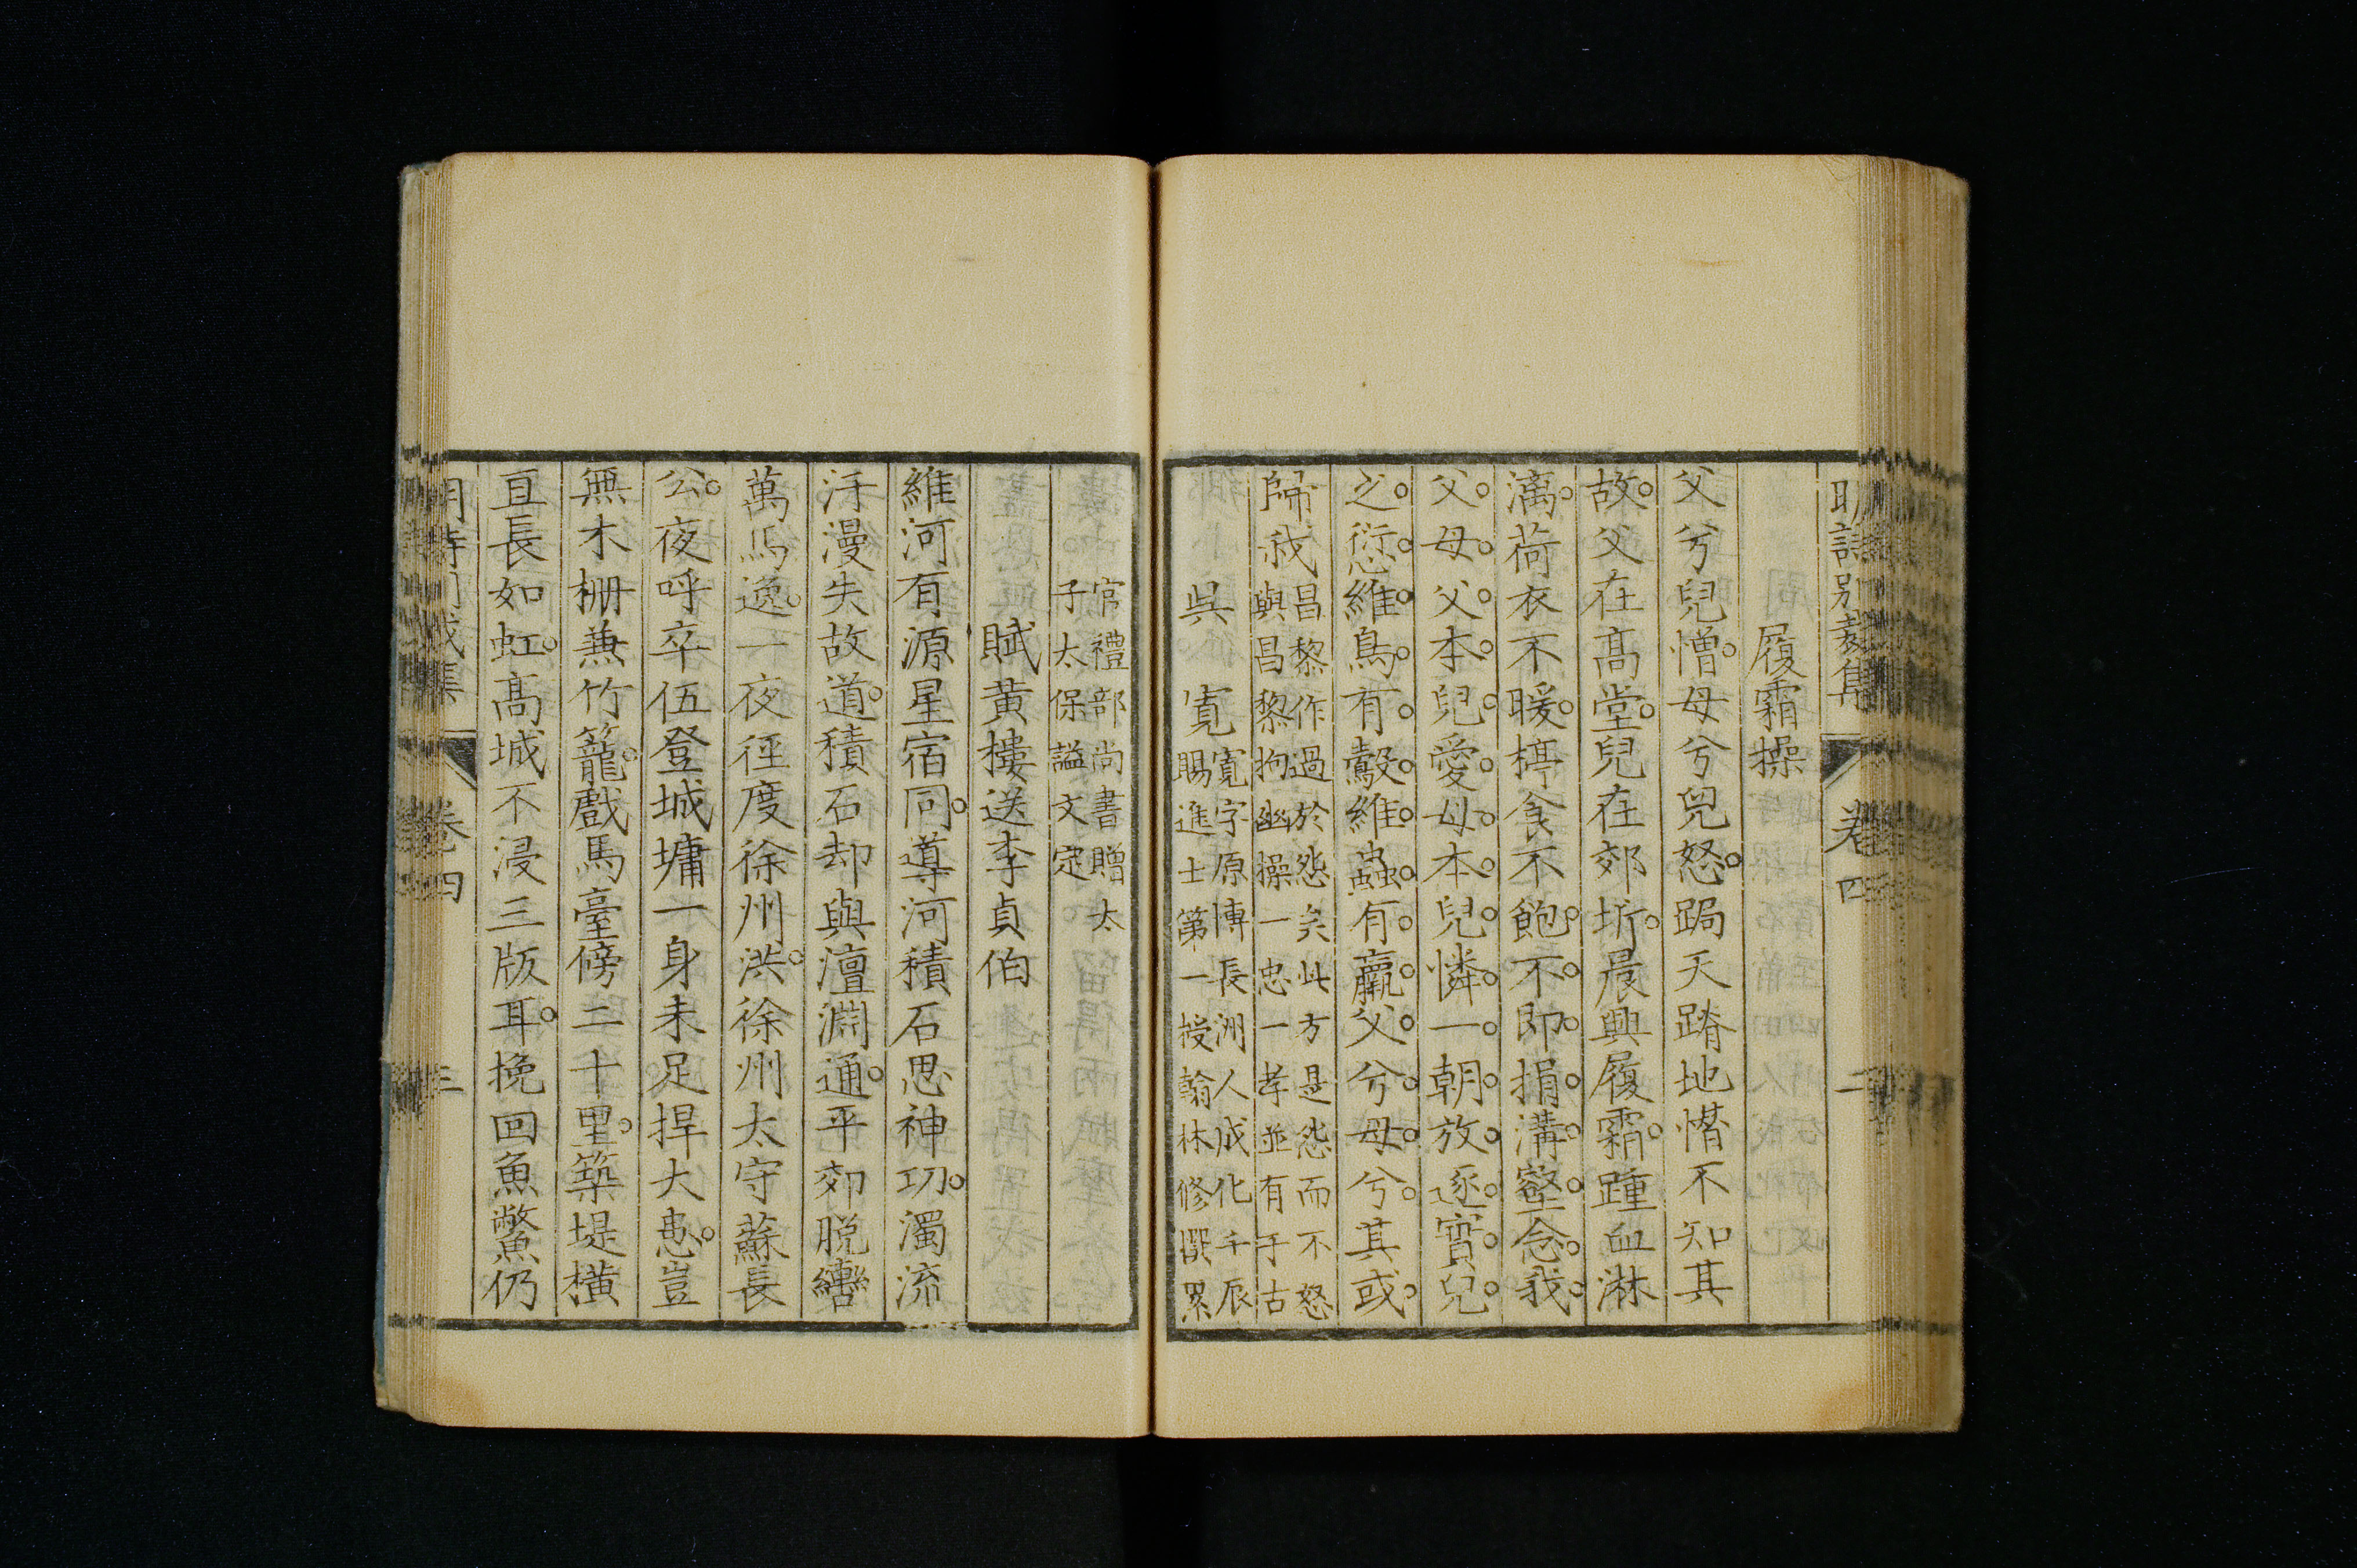 明詩別裁集 卷四 二
履霜操
父兮兒憎。母兮兒怒。跼天蹐地惛不知其
故。父在高堂。兒在郊圻。晨興履霜。踵血淋
漓。荷衣不暖。楟食不飽。不即捐溝壑。念我
父母。父本兒愛。母本兒憐。一朝放逐。實兒
之愆。維鳥有鷇。維蟲有蠃。父兮母兮。其或
歸我
昌黎作過於怨矣此方是怨而不怒
與昌黎拘幽操一忠一孝並有于古
吳寬
寬字原博長洲人成化壬辰
賜進士第一授翰林修撰累
官禮部尚書贈太
子太保謚文定
賦黃樓送李貞伯
維河有源星宿同。導河積石思神功。濁流
汗漫失故道。積石却與澶淵通。平郊脱轡
萬馬逸。一夜徑度徐州洪。徐州太守蘇長
公。夜呼卒伍登城墉一身未足捍大患。豈
無木柵兼竹籠。戲馬臺傍二十里。築堤橫
亘長如虹。高城不浸三版耳。挽回魚鱉仍
卷四 三